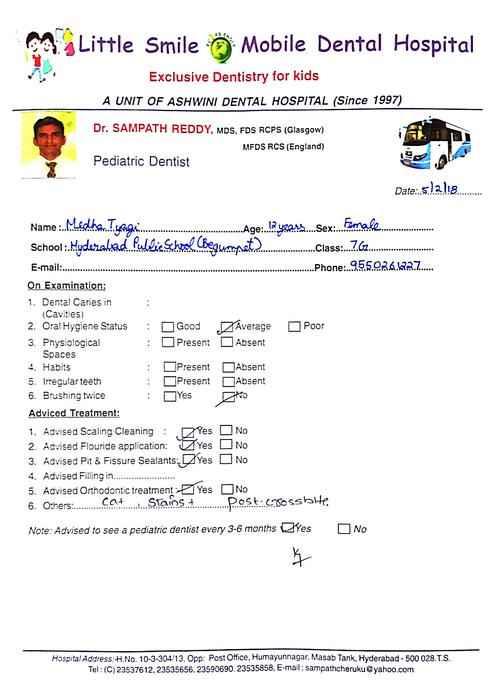 Little Smile Mobile Dental Hospital
Exclusive Dentistry for kids
A UNIT OF ASHWINI DENTAL HOSPITAL (Since 1997)
Dr. SAMPATH REDDY, MDS, FDS RCPS (Glasgow)
MFDS RCS (England)
Pediatric Dentist
Date: 5/2/18
Name: Medha Tyagi Age: 12 years Sex: Female
School: Hyderabad Public School (Begumpet) Class: 7G
E-mail: Phone: 9550261227
On Examination:
1. Dental Caries in :
(Cavities)
2. Oral Hygiene Status : Good Average Poor
3. Physiological : Present Absent
Spaces
4. Habits : Present Absent
5. Irregular teeth : Present Absent
6. Brushing twice : Yes No
Adviced Treatment:
1. Advised Scaling Cleaning : Yes No
2. Advised Flouride application: Yes No
3. Advised Pit & Fissure Sealants: Yes No
4. Advised Filling in
5. Advised Orthodontic treatment: Yes No
6. Others: Cal+, Stains+ Post-crossbite
Note: Advised to see a pediatric dentist every 3-6 months Yes No
Hospital Address:-H.No. 10-3-304/13, Opp: Post Office, Humayunnagar, Masab Tank, Hyderabad - 500 028.T.S.
Tel : (C) 23537612, 23535656, 23590690, 23535858, E-mail : sampathcheruku@yahoo.com